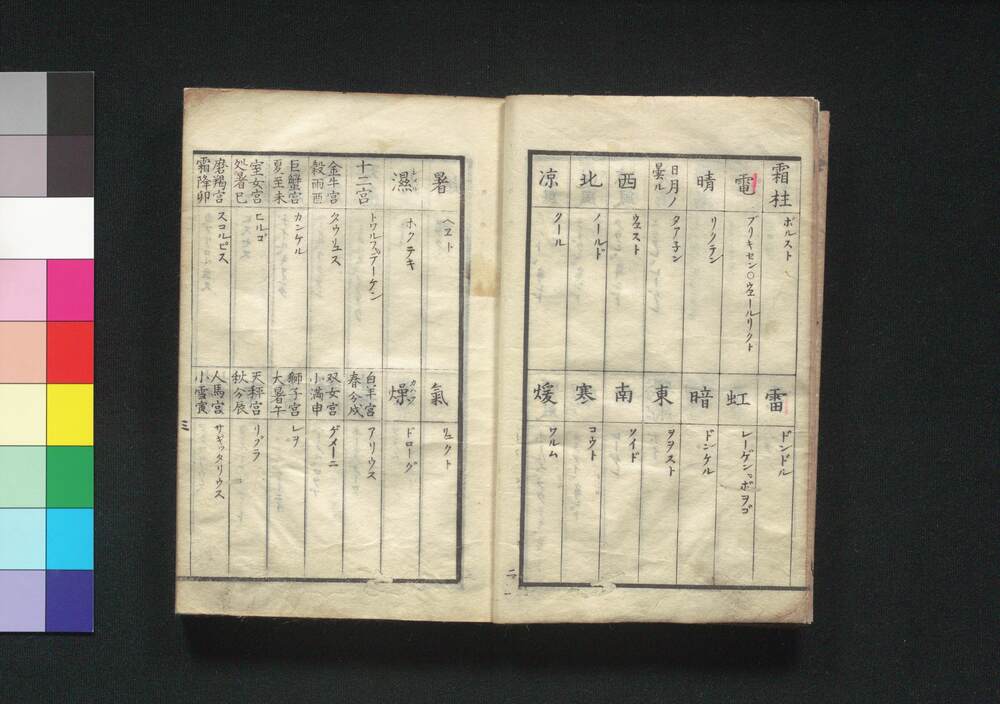 霜柱
ボルスト
電
ブリキセン○ウエールリクト
晴
リクテン
日月ノ
曇ル
タアネン
西
ウエスト
北
ノールド
凉
クール
雷
ドンドル
虹
レーゲンボヲゴ
暗
ドンケル
東
ヲヲスト
南
ソイド
寒
コウト
煖
ワルム
二
暑
ヘエト
濕
ホクテキ
十二宮
トワルフデーケン
金牛宮
穀雨酉
タウリュス
巨蟹宮
夏至未
カンケル
室女宮
処暑巳
ヒルゴ
磨羯宮
霜降卯
スコルピス
氣
リュクト
燥
カハク
ドローグ
白羊宮
春分戌
アリウス
双女宮
小満申
ゲメイニ
獅子宮
大暑午
レヲ
天秤宮
秋分辰
リブラ
人馬宮
小雪寅
サギッタリウス
三